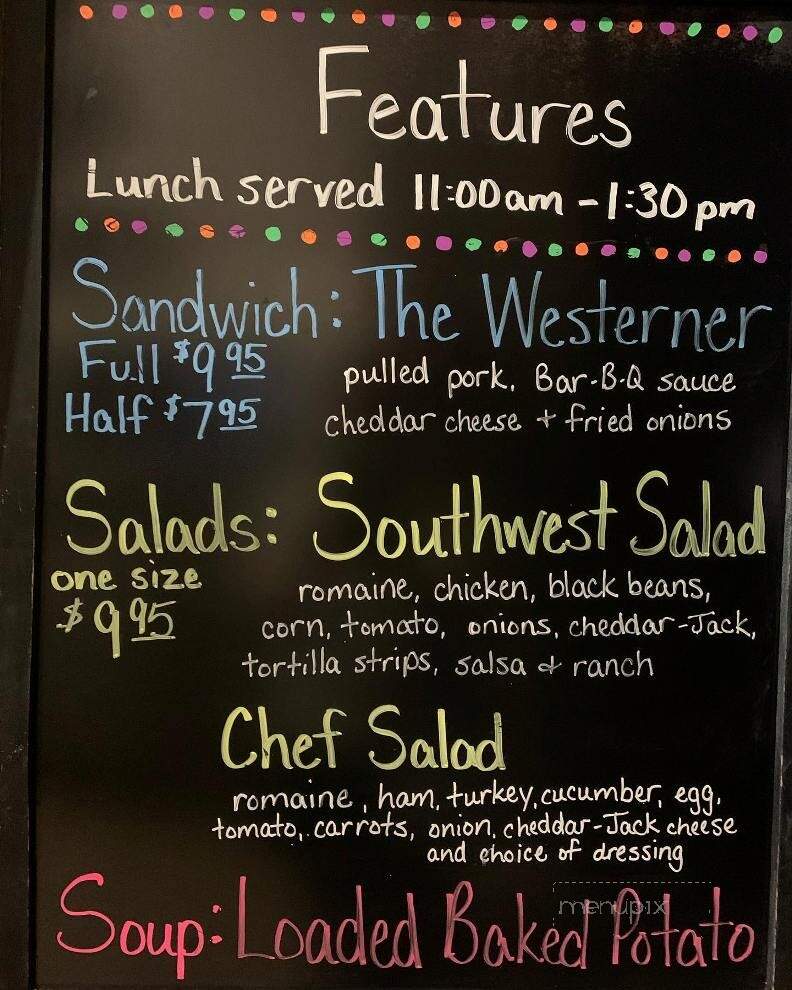 Features
Lunch served 11:00am - 1:30 pm
Sandwich: The Westerner
Full $9.95
pulled pork, Bar-B-Q sauce
Half $7.95
cheddar cheese + fried onions
Salads: Southwest Salad
one size
$9.95
romaine, chicken, black beans,
corn, tomato, onions, cheddar-Jack,
tortilla strips, salsa & ranch
Chef Salad
romaine, ham, turkey, cucumber, egg,
tomato, carrots, onion, cheddar-Jack cheese
and choice of dressing
menupix
Soup: Loaded Baked Potato